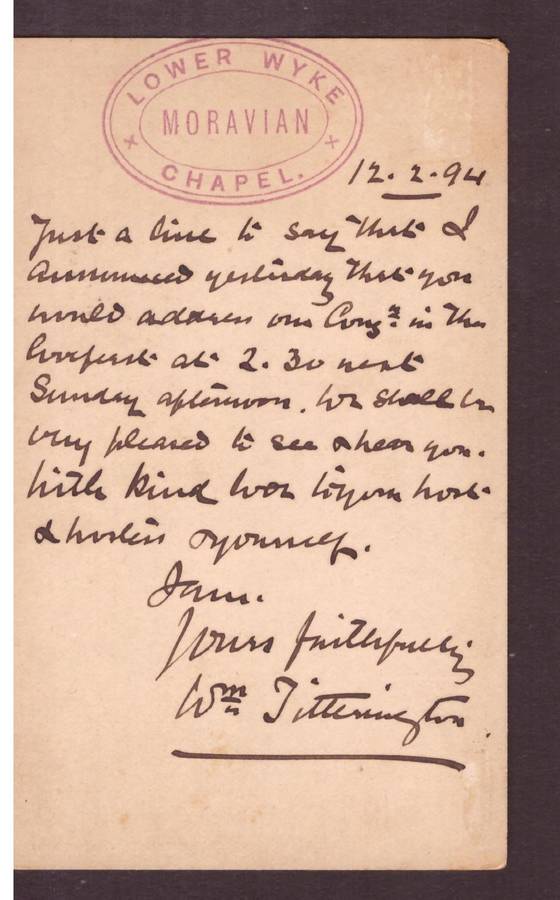 LOWER WYKE
MORAVIAN
CHAPEL.
12.2.94
Just a line to say that I
announced yesterday that you
would address our Congn in the
lovefeast at 2.30 next
Sunday afternoon. We shall be
very pleased to see & hear you.
With kind love to your host
& hostess & yourself.
I am.
Yours faithfully
Wm Titterington.